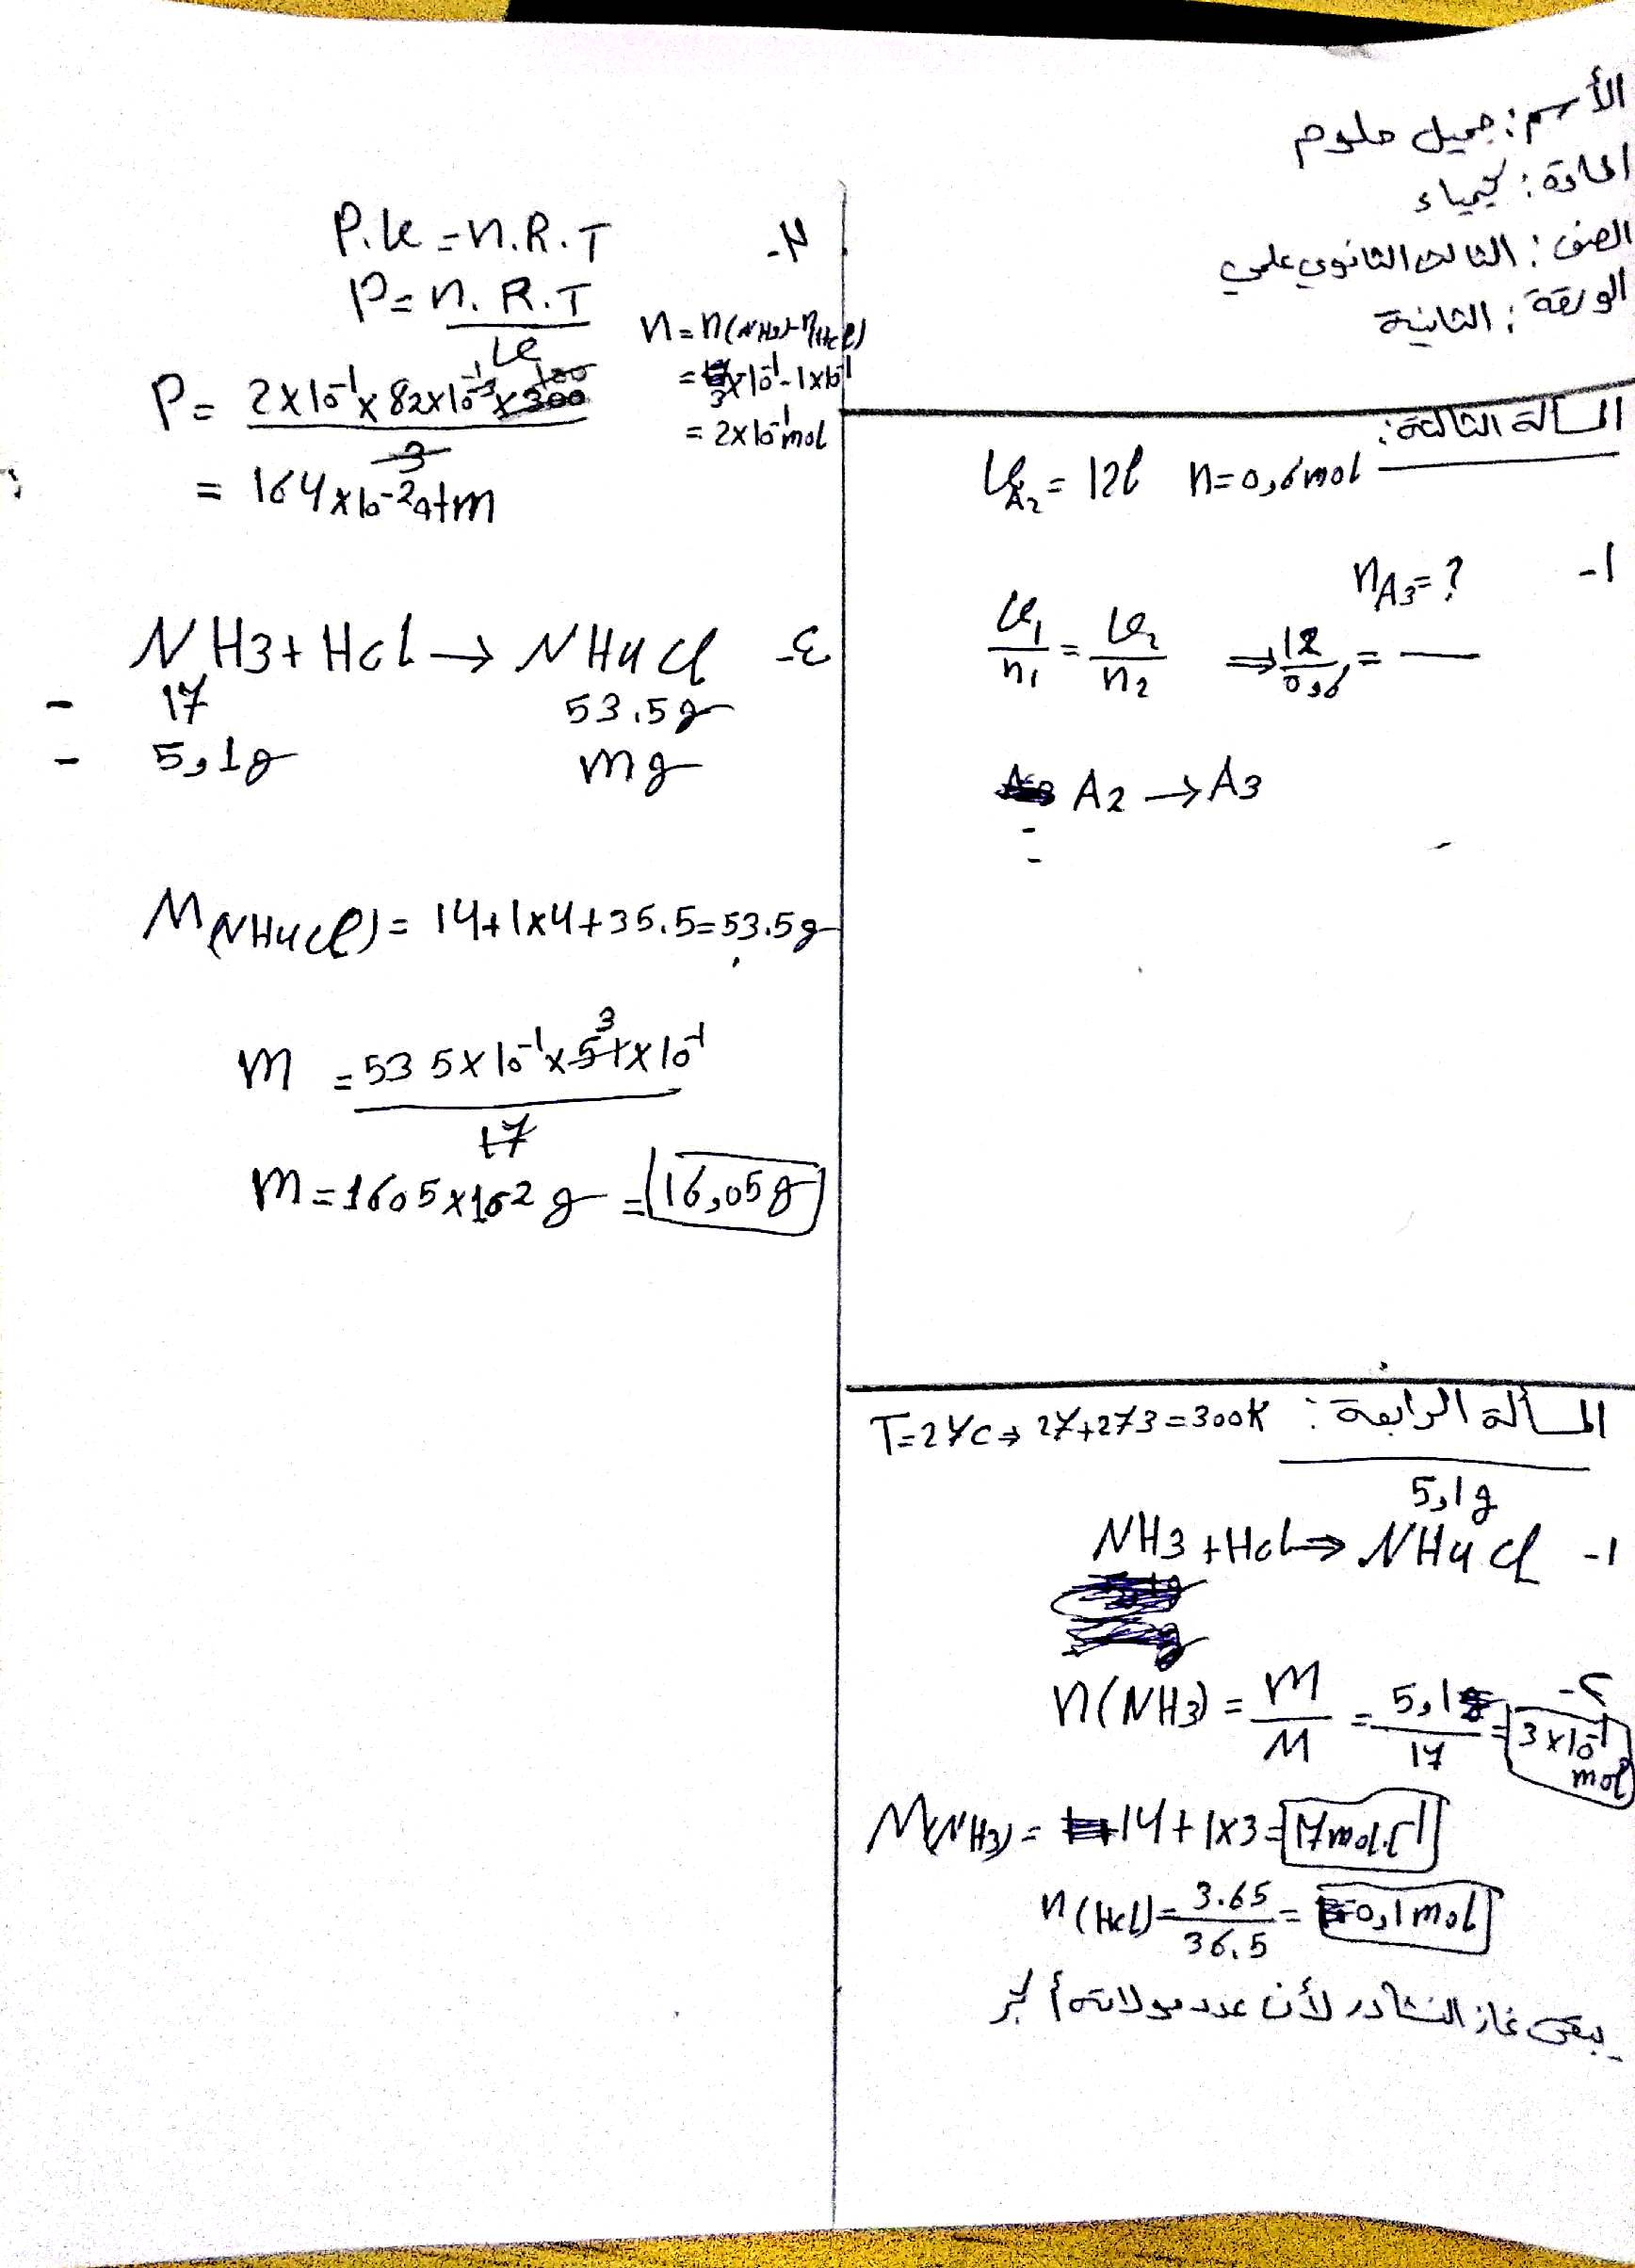 الأسم: جميل ملوم
المادة: كيمياء
الصف: الثالث الثانوي علمي
الورقة: الثانية
المسألة الثالثة:
V_A2 = 12l n=0,6mol
1- n_A3=?
V1/n1 = V2/n2 ⇒ 12/0,6 = —
A2 → A3
المسألة الرابعة: T=27C ⇒ 27+273=300K
5,1g
1- NH3 + Hcl → NH4Cl
2- n(NH3) = m/M = 5,1/17 = 3x10^-1 mol
M(NH3) = 14+1x3 = 17mol.l^-1
n(Hcl) = 3.65/36.5 = 0,1mol
يبقى غاز النشادر لأن عدد مولاته أكبر
3- P.V = n.R.T
P = n.R.T/V
n = n(NH3) - n(Hcl)
= 3x10^-1 - 1x10^-1
= 2x10^-1 mol
P = 2x10^-1 x 82x10^-3 x 300/3
= 164x10^-2 atm
4- NH3 + Hcl → NH4Cl
17 53.5g
5,1g mg
M(NH4cl) = 14+1x4+35.5=53.5g
m = 535x10^-1 x 51x10^-1/17
m = 1605x10^-2 g = 16,05g